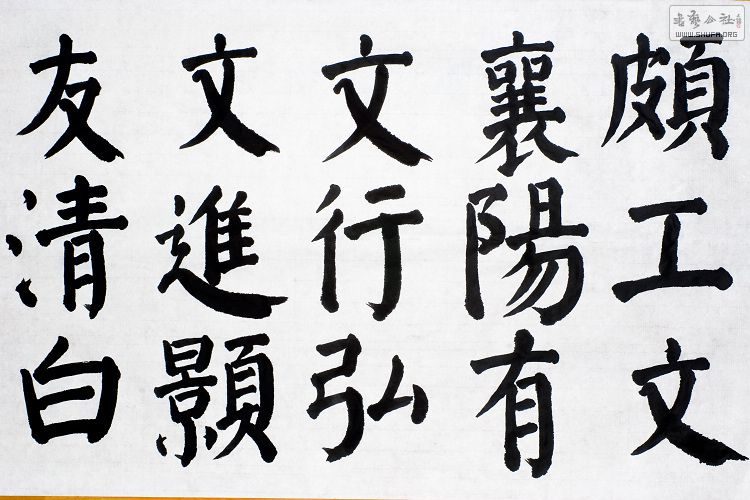 頗工文
襄陽有
文行弘
文進顥
友清白
書藝公社
WWW.SHUFA.ORG